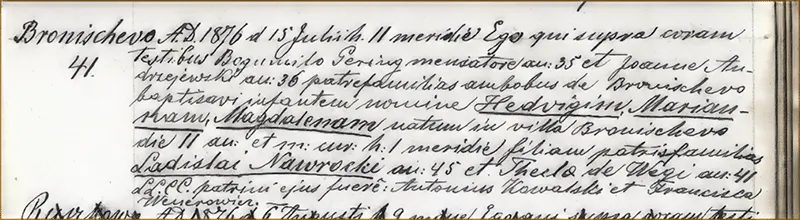 Bronischevo A.D. 1876 d 15 Julii h. 11 meridie Ego qui supra coram
41. testibus Bogumilo Gering mensatore an: 35 et Joanne An-
drzejewski an: 36 patrefamilias ambobus de Bronischevo
baptisavi infantem nomine Hedvigim, Marian-
nam, Magdalenam natum in villa Bronischevo
die 11 an: et m: cur: h: 1 meridie filiam patrisfamilias
Ladislai Nawrocki an: 45 et Theclæ de Wegi an: 41
LL.CC. patrini ejus fuere: Antonius Kowalski et Francisca
A.D. 1876 d 6 Augusti h 9